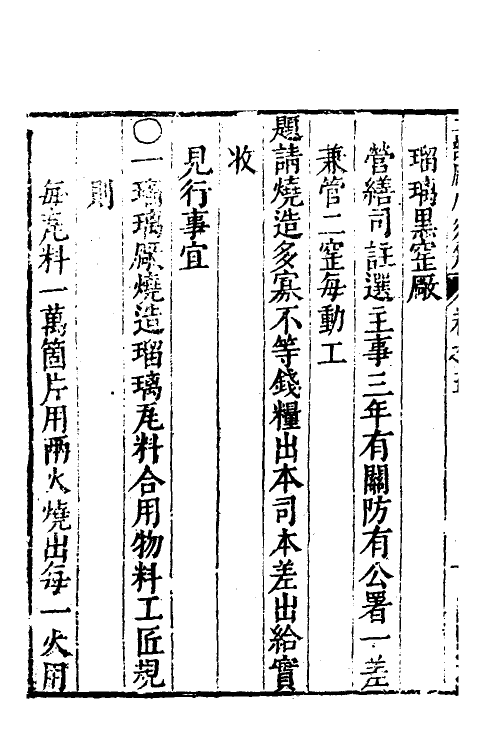 瑠璃黑窑厰
營繕司註選主事三年有關防有公署一差
兼管二窑每動工
題請燒造多寡不等錢糧出本司本差出給實
收
見行事宜
〇一璃璃厰燒造瑠璃瓦料合用物料工匠規
則
每瓦料一萬箇片用兩火燒出每一火用